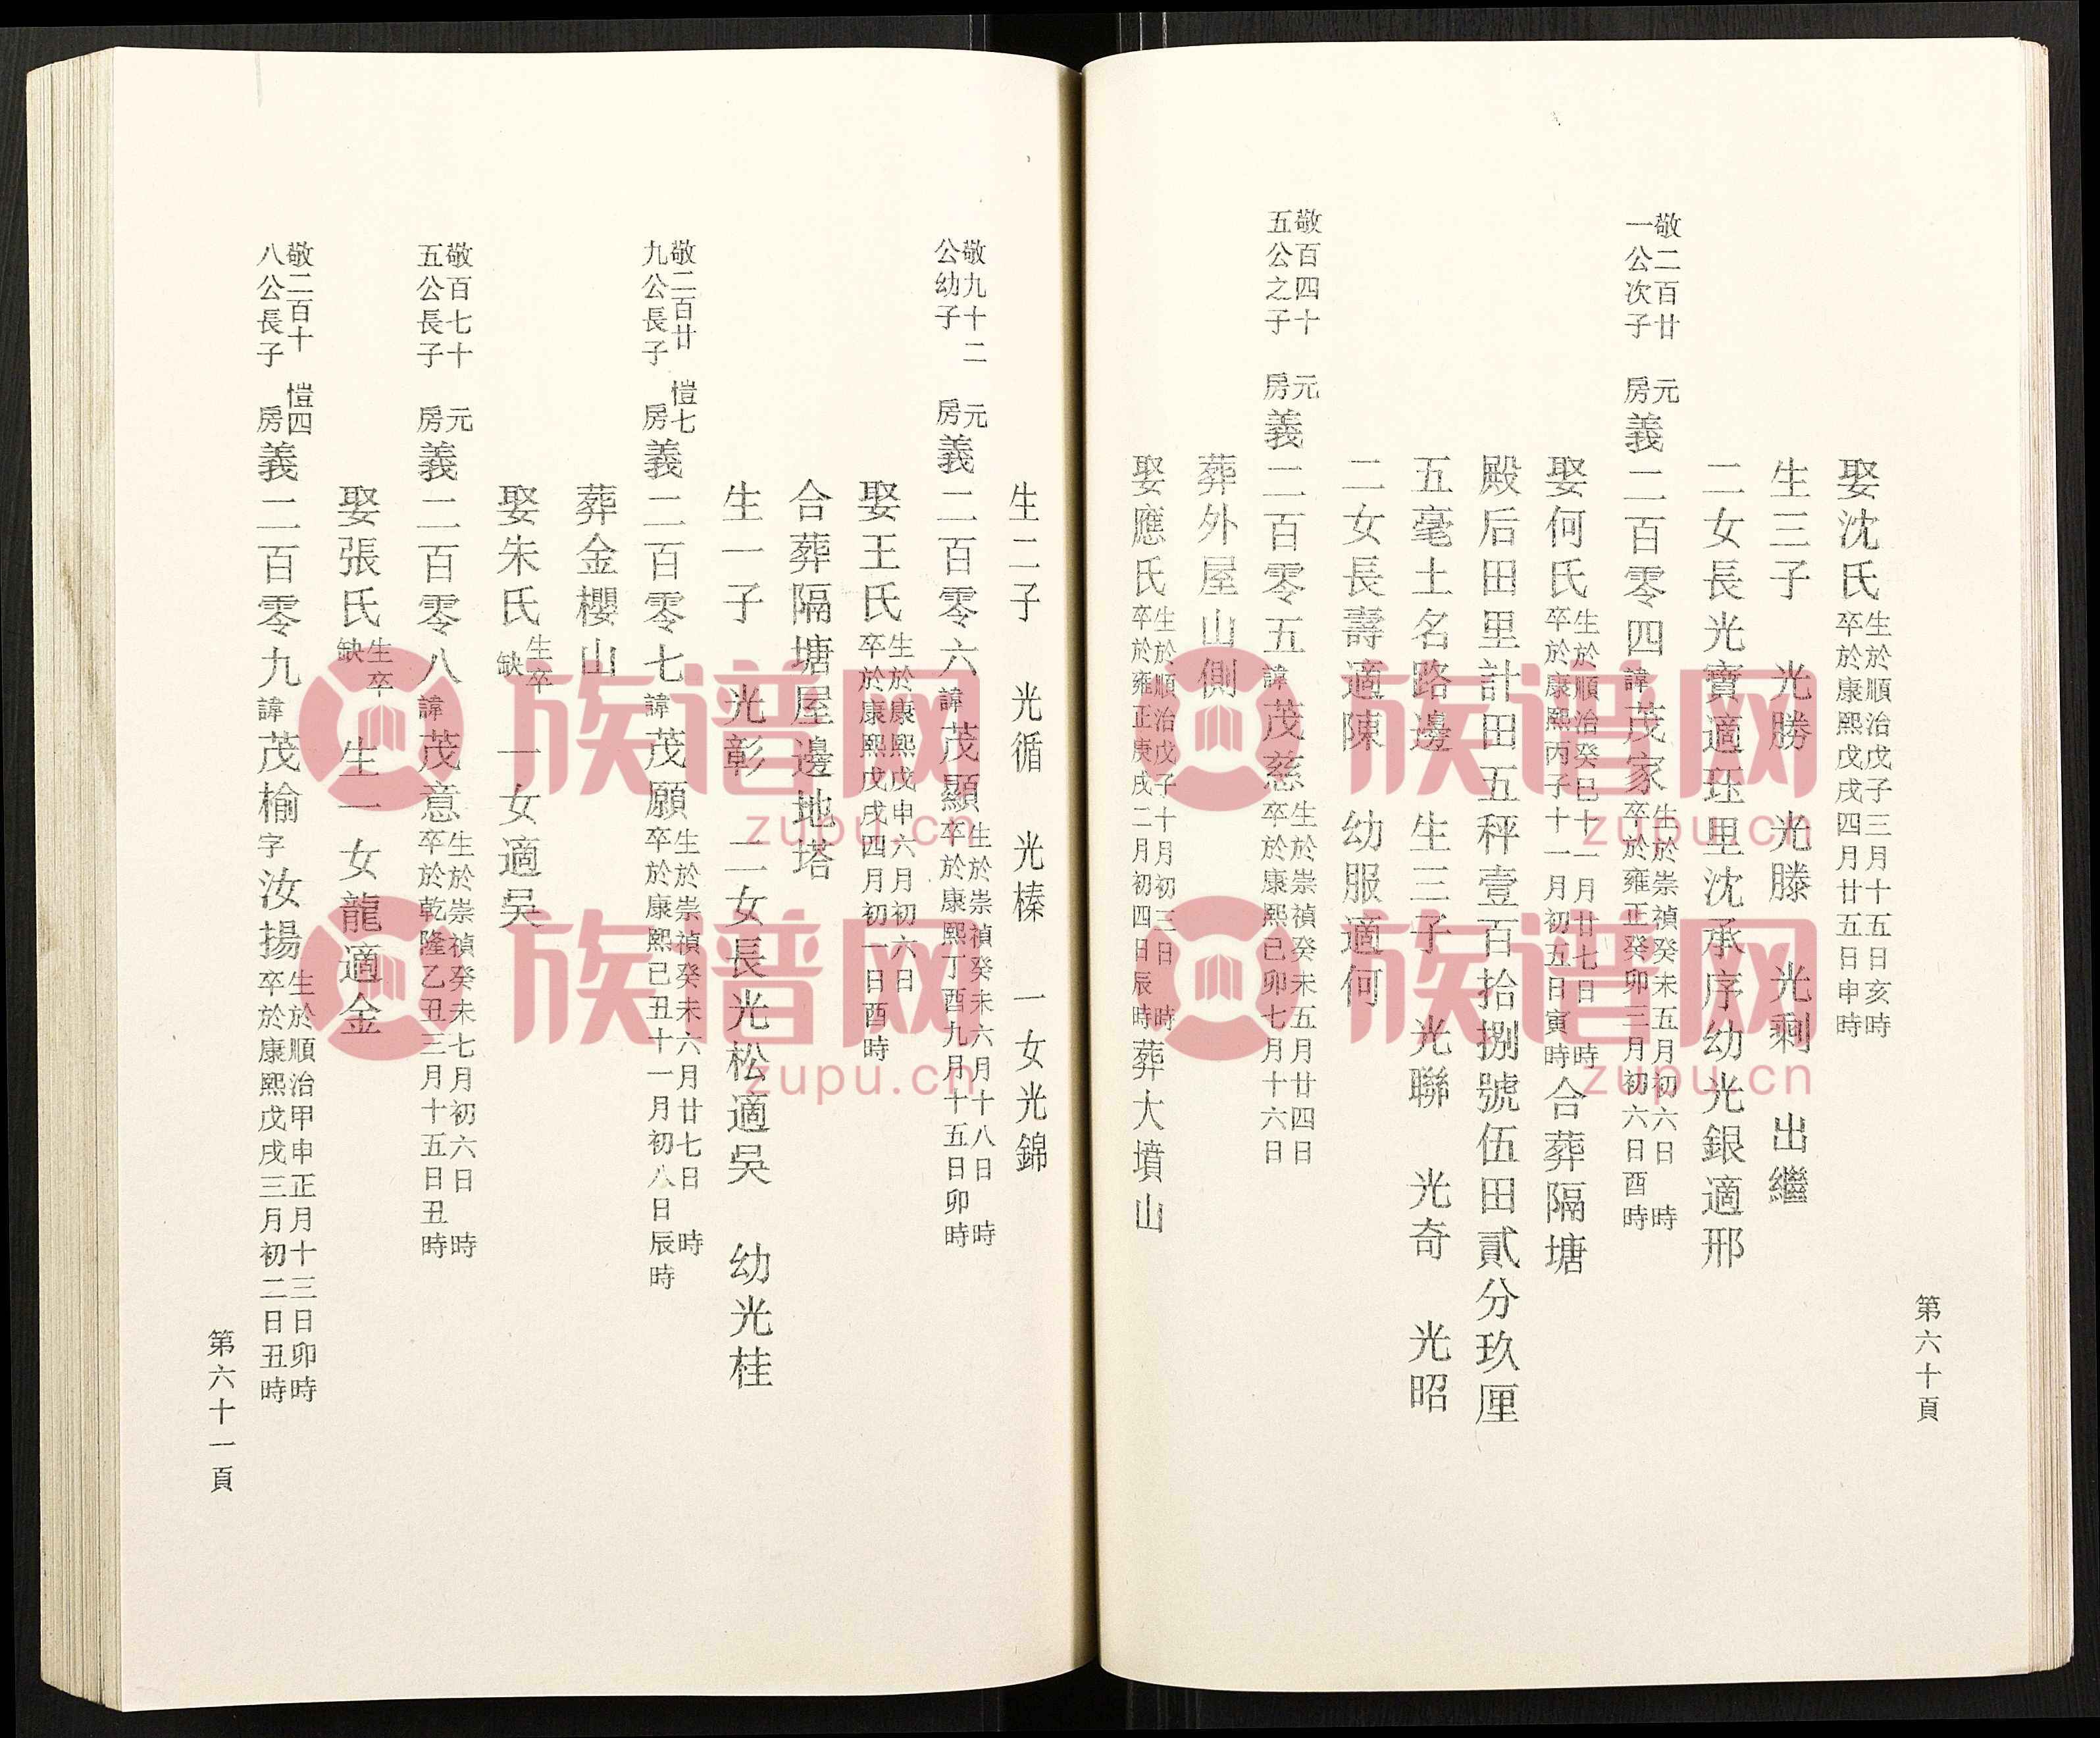 第六十頁
娶沈氏生於順治戊子三月十五日亥時
卒於康熙戊戌四月廿五日申時
生三子 光勝 光滕 光剩 出繼
二女長光寶適珏里沈承序幼光銀適邢
敬二百廿一公次子 元房 義二百零四諱茂家生於崇禎癸未五月初六日 時
卒於雍正癸卯三月初六日酉時
娶何氏生於順治癸巳十一月廿七日 時
卒於康熙丙子十一月初五日寅時合葬隔塘
殿后田里計田五秤壹百拾捌號伍田貳分玖厘
五毫土名路邊 生三子 光聯 光奇 光昭
二女長壽適陳 幼服適何
敬百四十五公之子 元房 義二百零五諱茂慈生於崇禎癸未五月廿四日
卒於康熙己卯七月十六日
葬外屋山側
娶應氏生於順治戊子十月初三日 時
卒於雍正庚戌二月初四日辰時葬大墳山
生二子 光循 光榛 一女光錦
敬九十二公幼子 元房 義二百零六諱茂顯生於崇禎癸未六月十八日 時
卒於康熙丁酉九月十五日卯時
娶王氏生於康熙戊申六月初六日
卒於康熙戊戌四月初一日酉時
合葬隔塘屋邊地塔
生一子 光彰 二女長光松適吳 幼光桂
敬二百廿九公長子 愷七房 義二百零七諱茂願生於崇禎癸未六月廿七日 時
卒於康熙己丑十一月初八日辰時
葬金櫻山
娶朱氏生卒缺 一女適吳
敬百七十五公長子 元房 義二百零八諱茂意生於崇禎癸未七月初六日 時
卒於乾隆乙丑三月十五日丑時
娶張氏生卒缺 生一女龍適金
敬二百十八公長子 愷四房 義二百零九諱茂榆字汝揚生於順治甲申正月十三日卯時
卒於康熙戊戌三月初二日丑時
第六十一頁
族谱网
zupu.cn
族谱网
zupu.cn
族谱网
zupu.cn
族谱网
zupu.cn